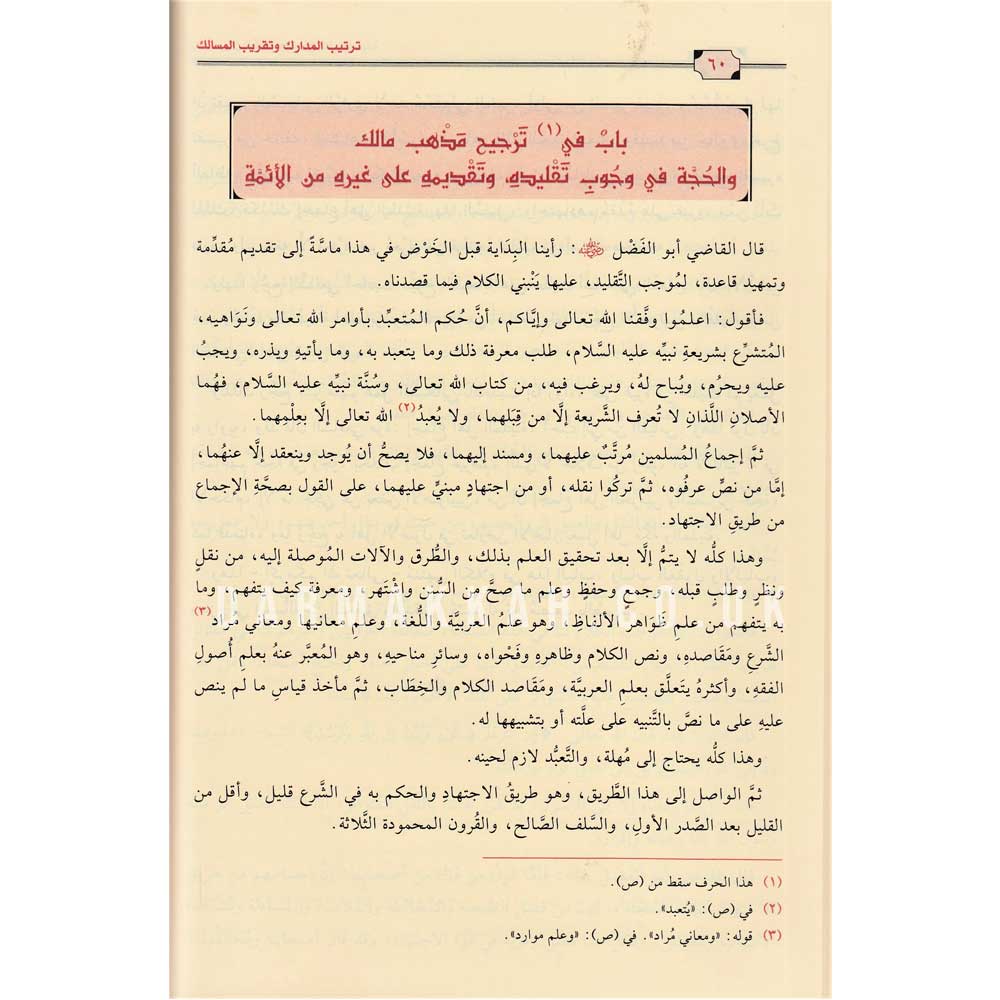 ترتيب المدارك وتقريب المسالك
٦٠
بابٌ في(١) تَرْجيح مَذْهب مالك
والحُجَّة في وجُوبِ تَقْليدهِ، وتَقْديمهِ على غيرهِ من الأئمَّةِ
قال القاضي أبو الفَضْل رضي الله عنه: رأينا البِدَاية قبل الخَوْض في هذا ماسَّةً إلى تقديم مُقدِّمة
وتمهيد قاعدة، لمُوجب التَّقليد، عليها يَنْبني الكلام فيما قصدناه.
فأقول: اعلمُوا وفَّقنا الله تعالى وإيَّاكم، أنَّ حُكم المُتعبِّد بأوامر الله تعالى ونَوَاهيه،
المُتشرِّع بشريعةِ نبيِّه عليه السَّلام، طلب معرفة ذلك وما يتعبد به، وما يأتيهِ ويذره، ويجبُ
عليه ويحرُم، ويُباح لهُ، ويرغب فيه، من كتاب الله تعالى، وسُنَّة نبيِّه عليه السَّلام، فهُما
الأصلان اللَّذان لا تُعرف الشَّريعة إلَّا من قِبَلهما، ولا يُعبدُ(٢) الله تعالى إلَّا بعِلْمِهما.
ثمَّ إجماعُ المُسلمين مُرتَّبٌ عليهما، ومسند إليهما، فلا يصحُّ أن يُوجد وينعقد إلَّا عنهُما،
إمَّا من نصٍّ عرفُوه، ثمَّ تركُوا نقله، أو من اجتهادٍ مبنيٍّ عليهما، على القول بصحَّةِ الإجماع
من طريقِ الاجتهاد.
وهذا كلُّه لا يتمُّ إلَّا بعد تحقيق العلم بذلك، والطُّرق والآلات المُوصلة إليه، من نقلٍ
ونظرٍ وطلبٍ قبله، وجمعٍ وحفظٍ وعلم ما صحَّ من السُّنن واشْتَهر، ومعرفة كيف يتفهم، وما
DARMAKKAH.CO.UK
به يتفهم من علمِ ظَوَاهر الألفاظِ، وهو علمُ العربيَّة واللُّغة، وعلمِ معانيها ومعاني مُراد(٣)
الشَّرع ومَقَاصدهِ، ونص الكلام وظاهرهِ وفَحْواه، وسائرِ مناحيهِ، وهو المُعبَّر عنهُ بعلمِ أُصولِ
الفقهِ، وأكثرهُ يتعلَّق بعلمِ العربيَّة، ومَقَاصد الكلام والخِطَاب، ثمَّ مأخذ قياسِ ما لم ينص
عليهِ على ما نصَّ بالتَّنبيه على علَّته أو بتشبيهها له.
وهذا كلُّه يحتاج إلى مُهلة، والتَّعبُّد لازم لحينه.
ثمَّ الواصل إلى هذا الطَّريق، وهو طريقُ الاجتهادِ والحكم به في الشَّرع قليل، وأقل من
القليل بعد الصَّدر الأولِ، والسَّلف الصَّالح، والقُرون المحمودة الثَّلاثة.
(١) هذا الحرف سقط من (ص).
(٢) في (ص): «يُتعبد».
(٣) قوله: «ومعاني مُراد». في (ص): «وعلم موارد».